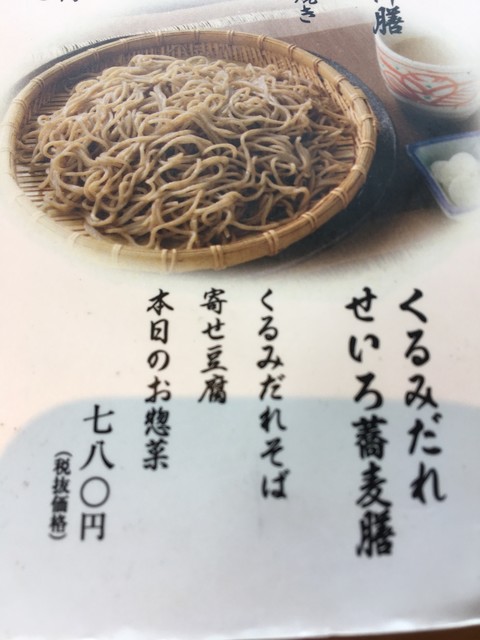 くるみだれ
せいろ蕎麦膳
くるみだれそば
寄せ豆腐
本日のお惣菜
七八〇円
（税抜価格）